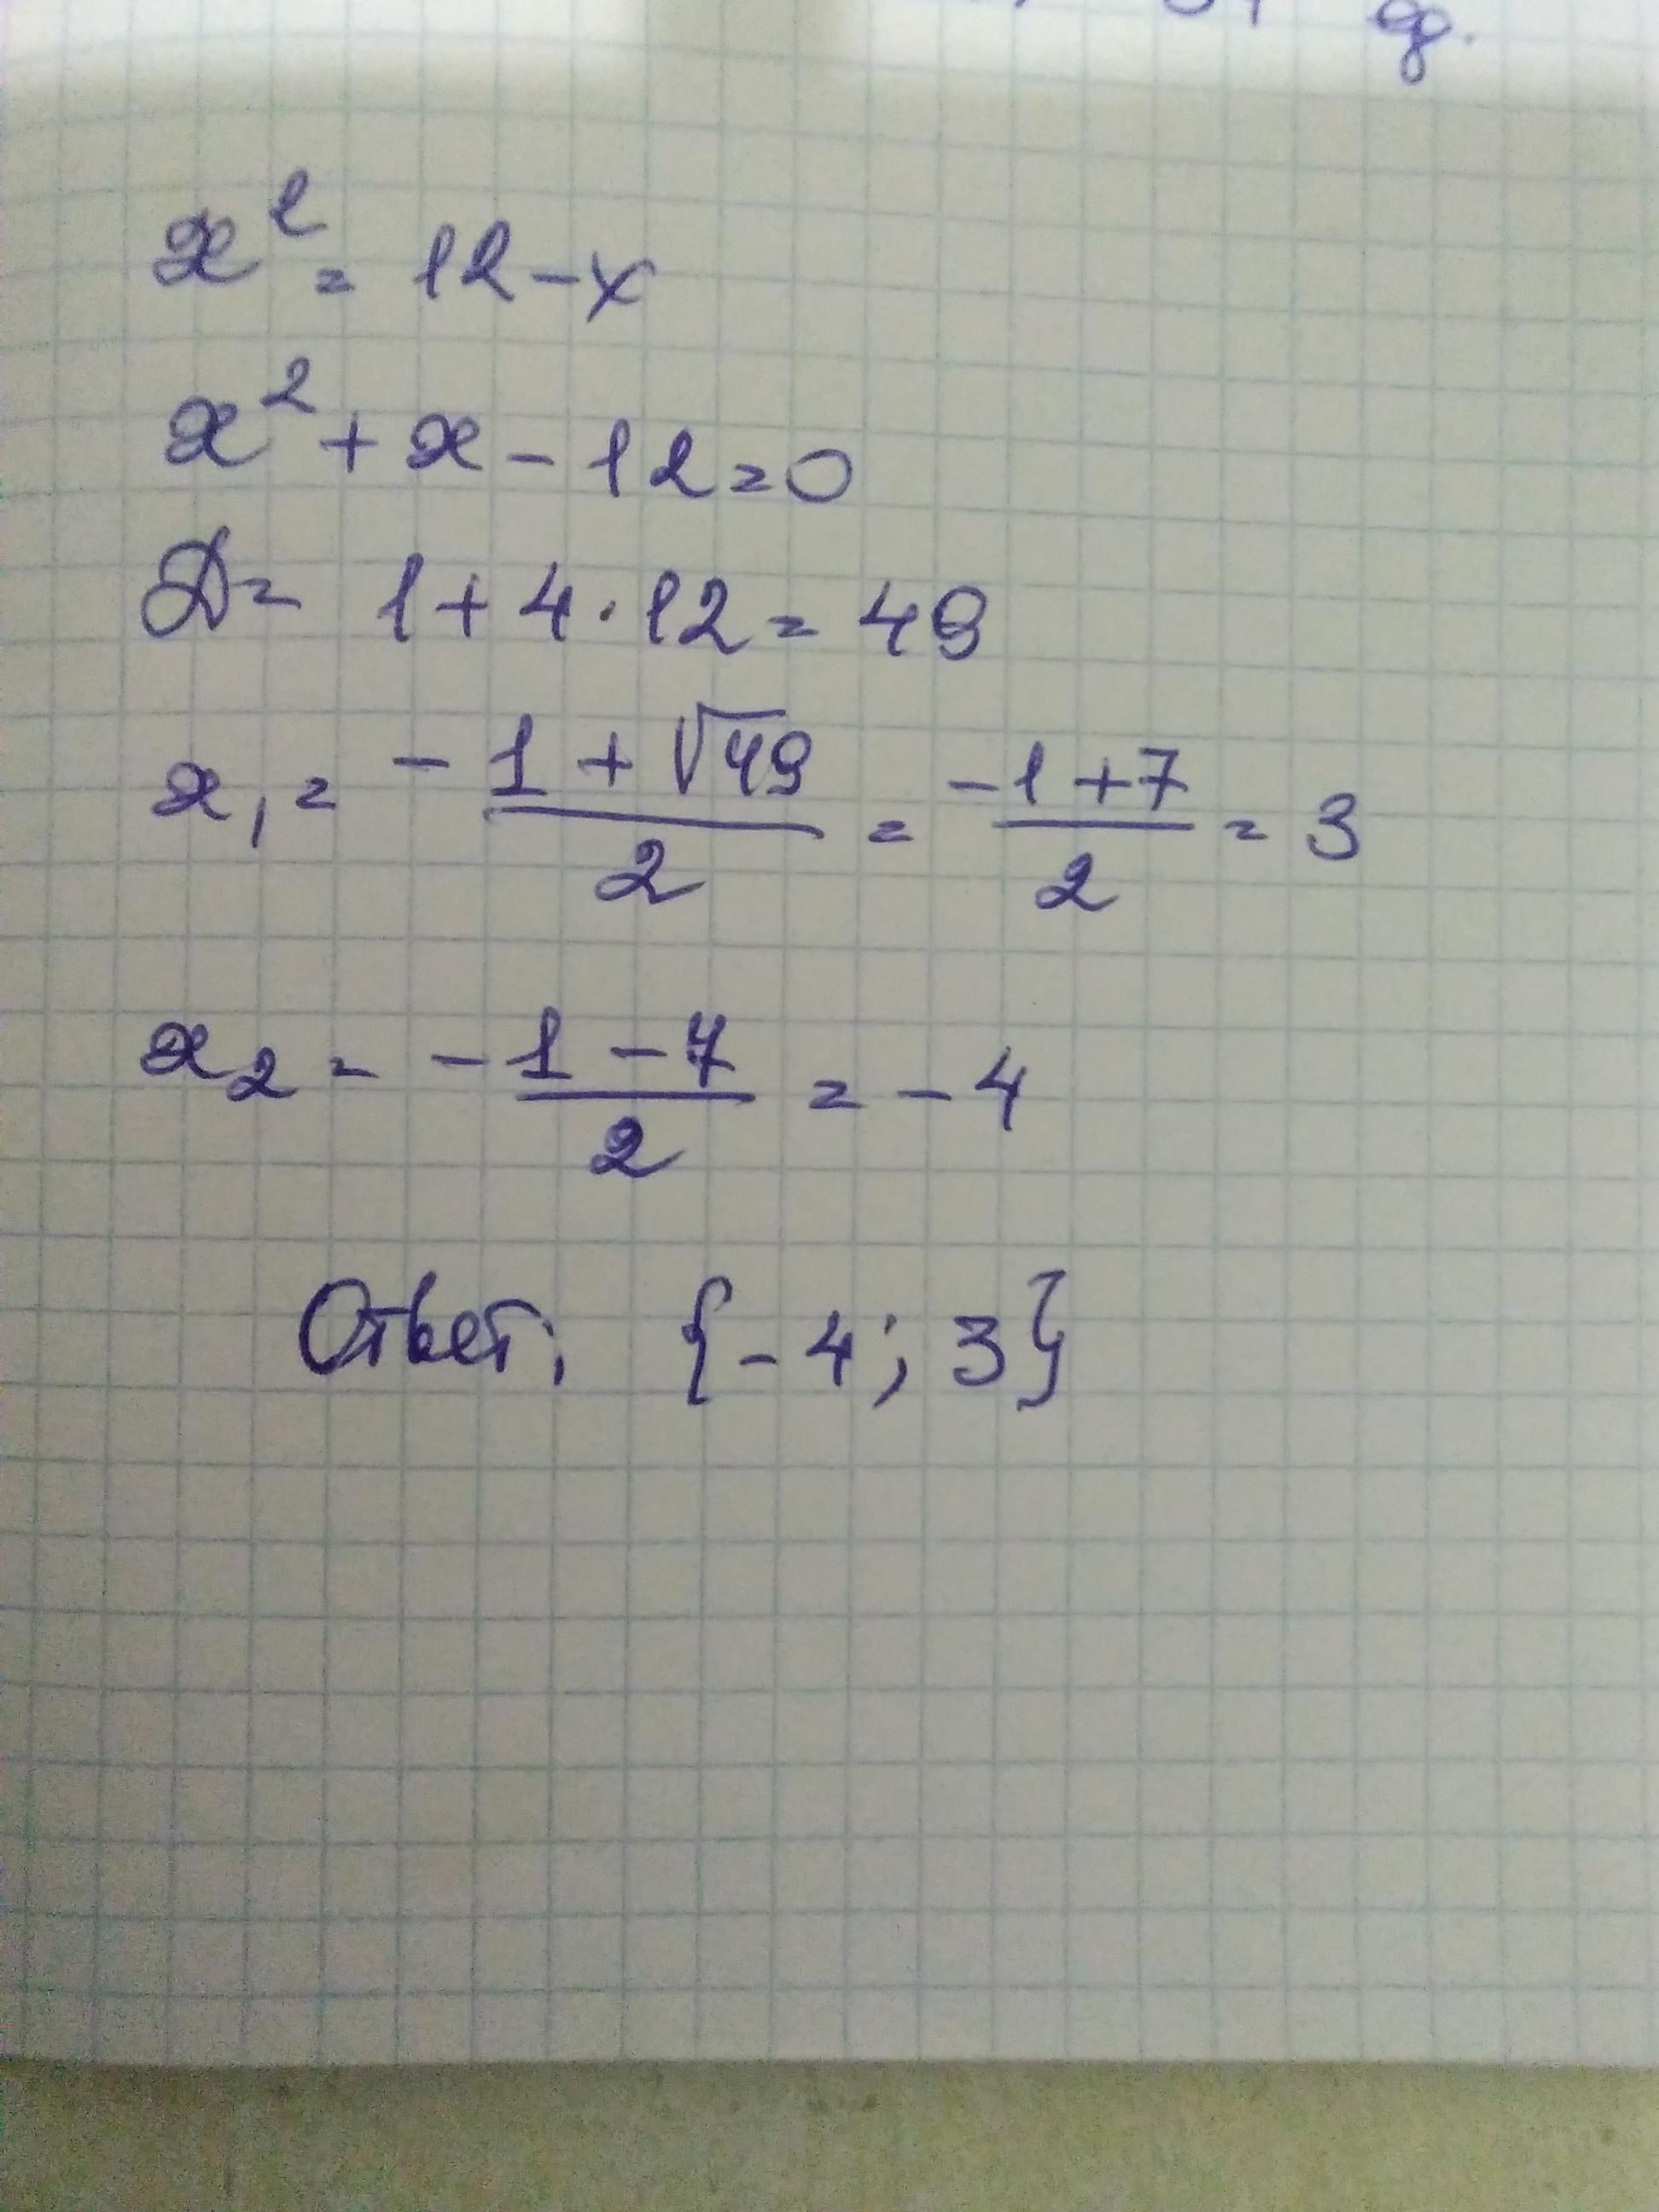 x² = 12 - x
x² + x - 12 = 0
D = 1 + 4 · 12 = 49
x₁ = (-1 + √49)/2 = (-1 + 7)/2 = 3
x₂ = (-1 - 7)/2 = -4
Ответ: {-4; 3}